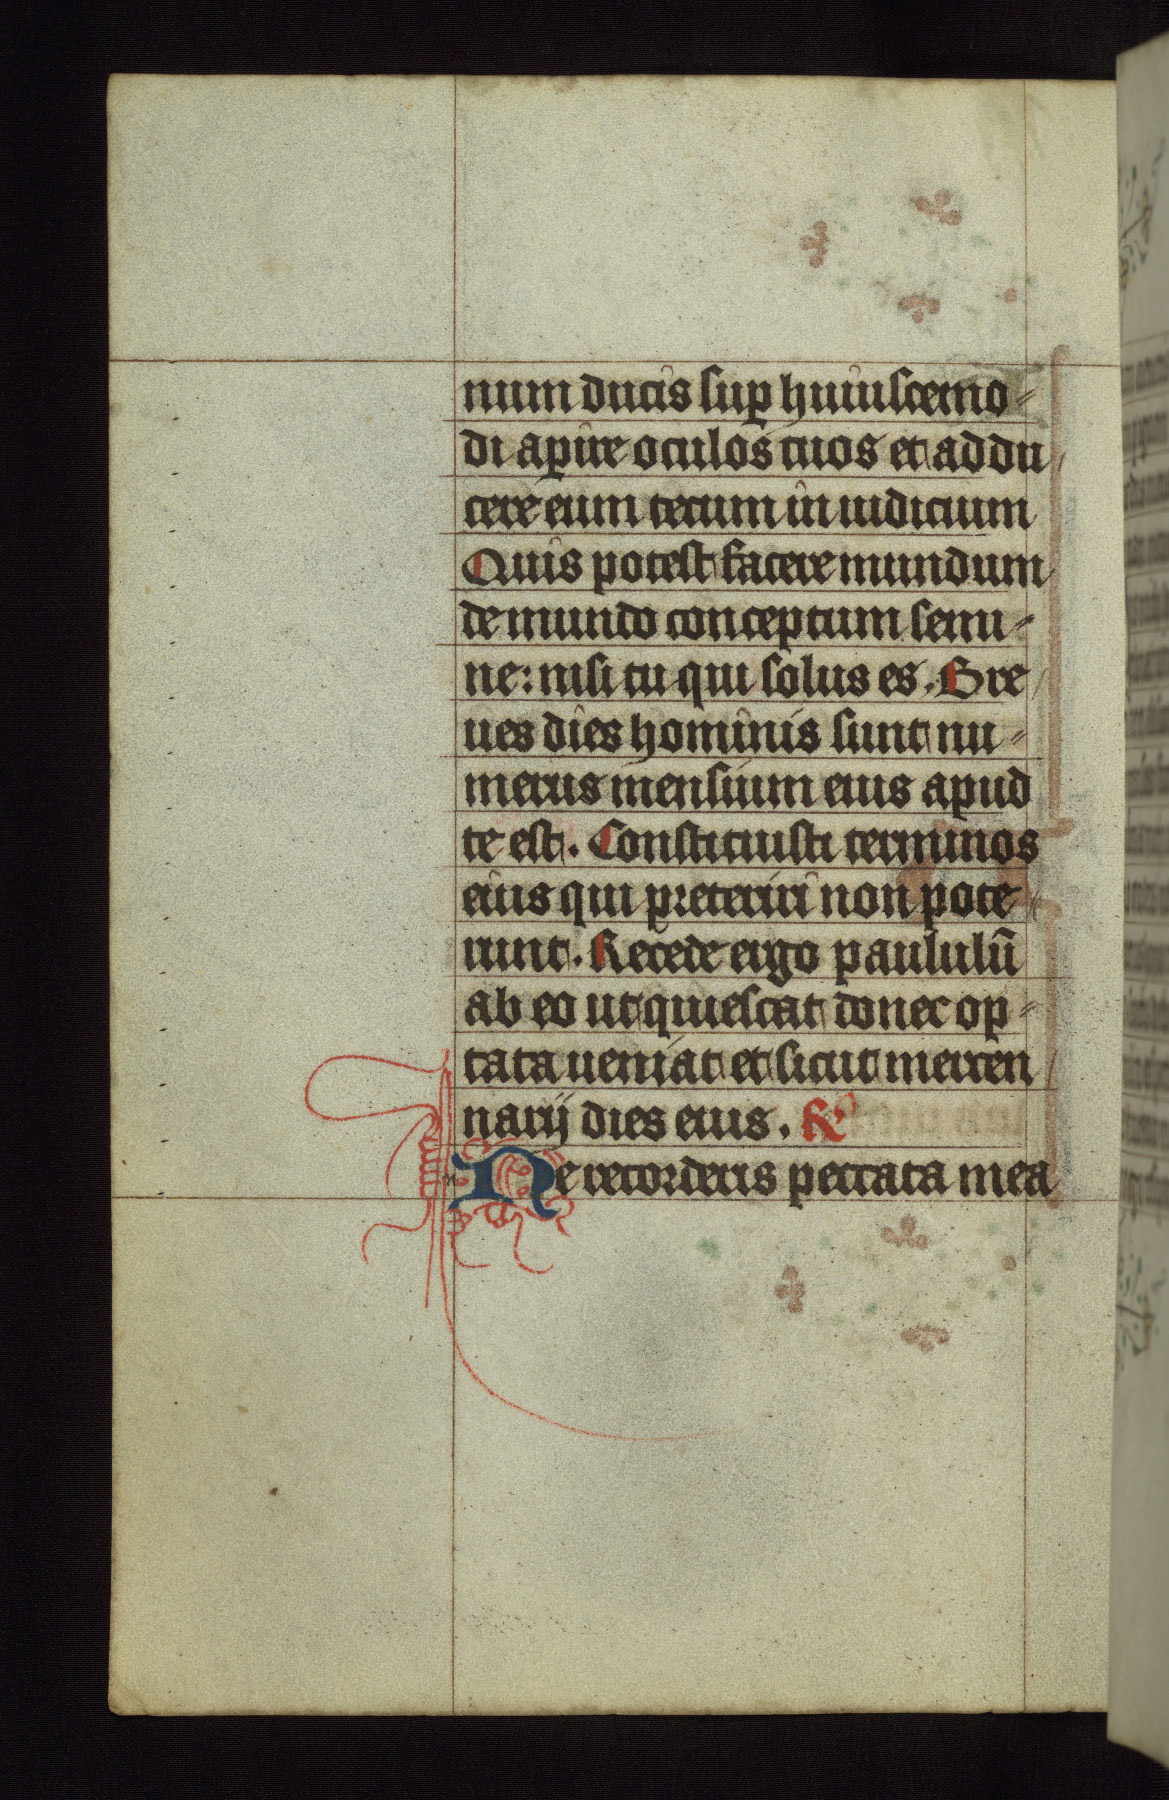 num ducis sup huiuscemo-
di apire oculos tuos et addu
cere eum tecum in iudicium
Quis potest facere mundum
de mundo conceptum semi-
ne: nisi tu qui solus es. Bre
ues dies hominis sunt nu-
merus mensium eius apud
te est. Constituisti terminos
eius qui preteriri non pote
runt. Recede ergo paululū
ab eo ut quiescat donec op-
tata ueniat et sicut mercen
narij dies eius. R
Ne recorderis peccata mea